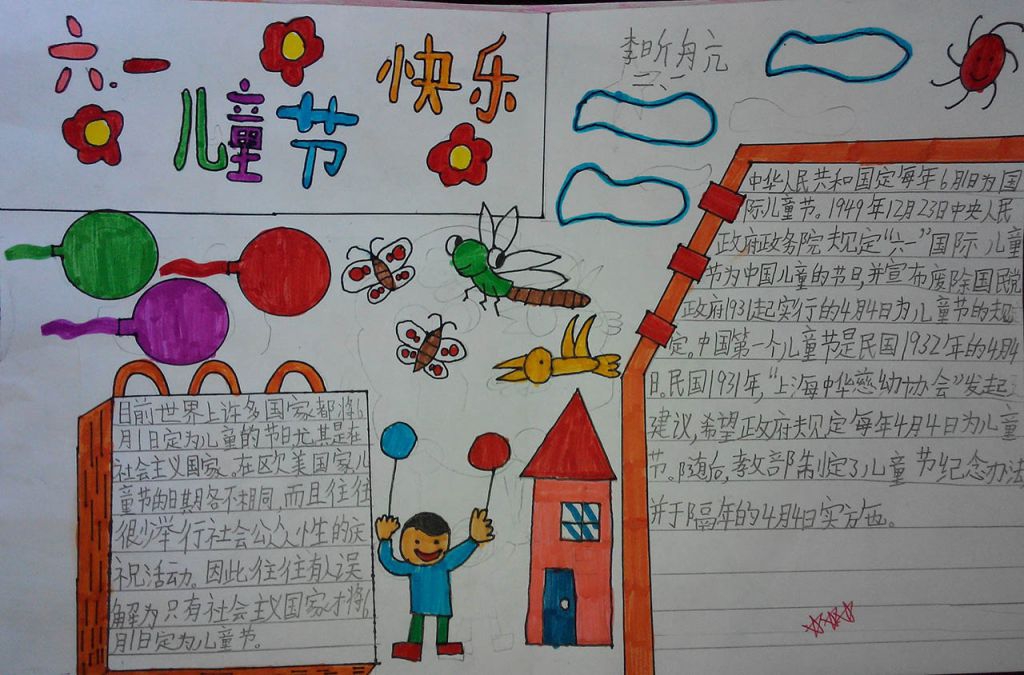 六一
儿童节
快乐
李昕舟亢
三、一
中华人民共和国定每年6月1日为国
际儿童节。1949年12月23日中央人民
政府政务院规定“六一”国际儿童
节为中国儿童的节日,并宣布废除国民党
政府1931起实行的4月4日为儿童节的规
定。中国第一个儿童节是民国1932年的4月4
日。民国1931年,“上海中华慈幼协会”发起
建议,希望政府规定每年4月4日为儿童
节。随后,教文部制定了儿童节纪念办法
并于隔年的4月4日实施。
目前世界上许多国家都将6
月1日定为儿童的节日尤其是在
社会主义国家。在欧美国家儿
童节的日期各不相同,而且往往
很少举行社会公众性的庆
祝活动。因此往往有人误
解为只有社会主义国家才将6
月1日定为儿童节。